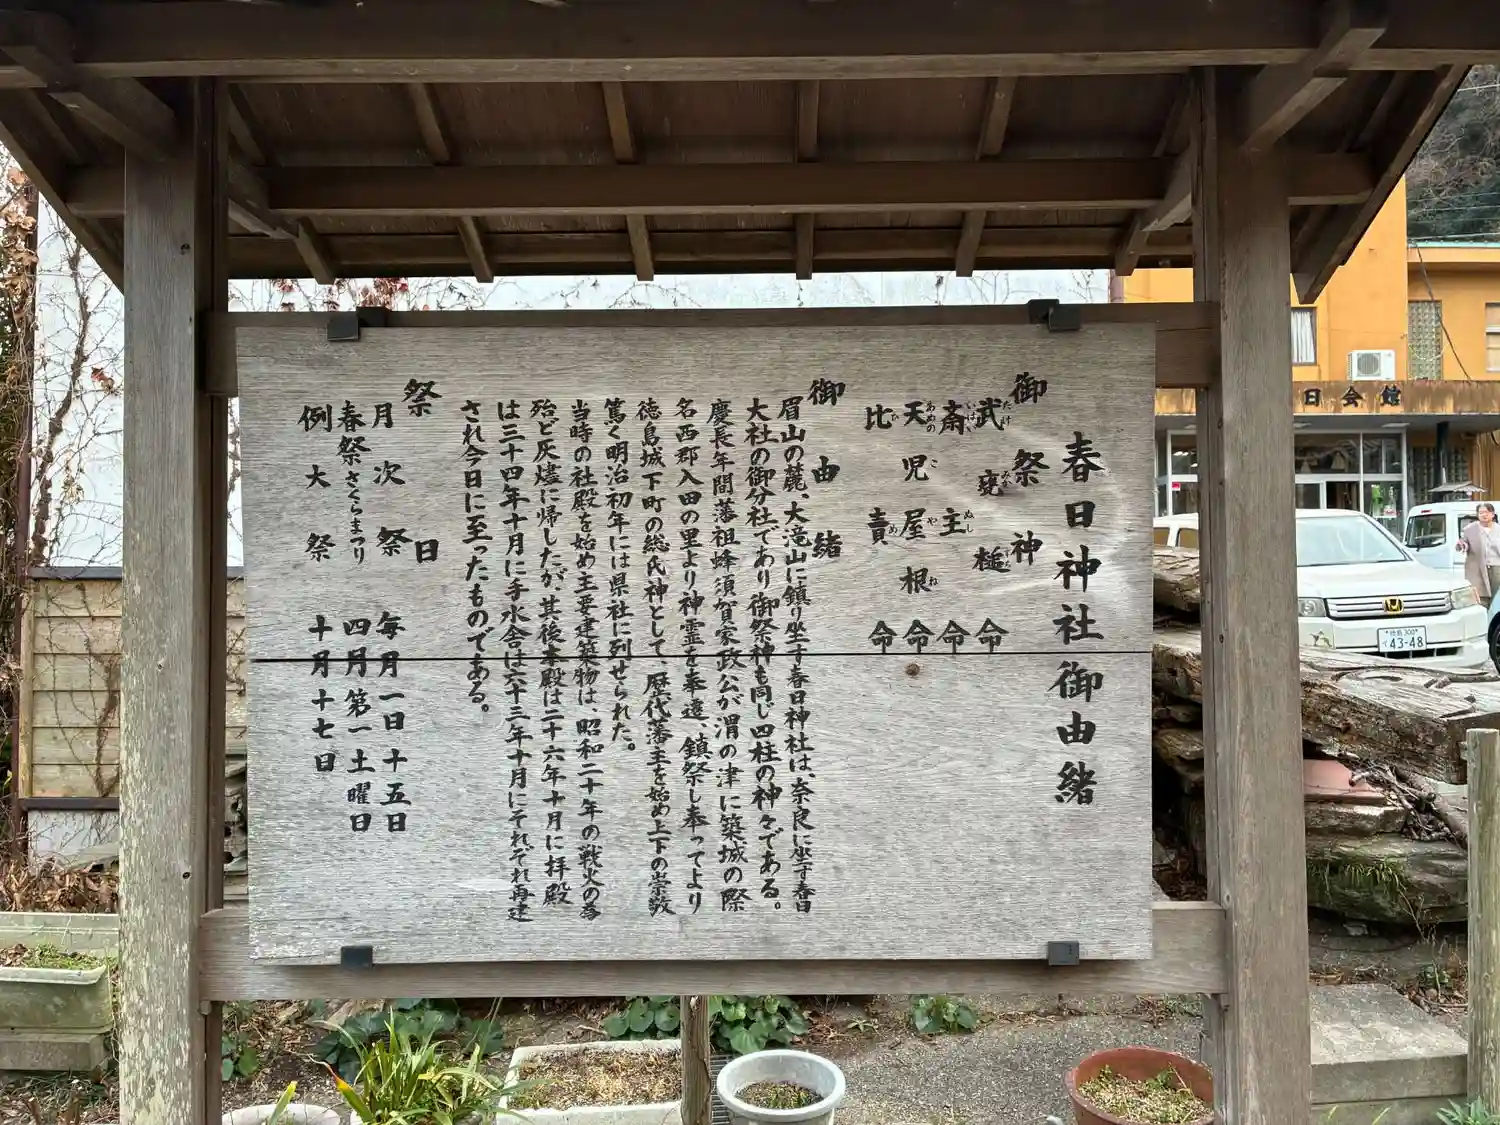 春日神社御由緒
御祭神
武甕槌命
斎主命
天児屋根命
比売命
御由緒
眉山の麓、大滝山に鎮り坐す春日神社は、奈良に坐す春日
大社の御分社であり御祭神も同じ四柱の神々である。
慶長年間藩祖蜂須賀家政公が渭の津に築城の際
名西郡入田の里より神霊を奉遷、鎮祭し奉ってより
徳島城下町の総氏神として、歴代藩主を始め上下の崇敬
篤く明治初年には県社に列せられた。
当時の社殿を始め主要建築物は、昭和二十年の戦火の為
殆ど灰燼に帰したが其後本殿は二十六年十月に拝殿
は三十四年十月に手水舎は六十三年十月にそれぞれ再建
され今日に至ったものである。
祭日
月次祭 毎月一日十五日
春祭さくらまつり 四月第一土曜日
例大祭 十月十七日
日会館
43-48